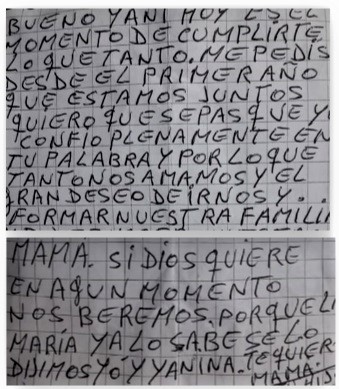 BUENO YANI HOY ES EL
MOMENTO DE CUMPLIRTE
LO QUE TANTO. ME PEDIS
DESDE EL PRIMER AÑO
QUE ESTAMOS JUNTOS
QUIERO QUE SEPAS QUE Y
CONFIO PLENAMENTE EN
TU PALABRA Y POR LO QUE
TANTO NOS AMAMOS Y EL
GRAN DESEO DE IRNOS Y..
FORMAR NUESTRA FAMILI
MAMA. Si DIOS QUIERE
EN AGUN MOMENTO
NOS BEREMOS. PORQUE LI
MARÍA YA LO SABE SE LO
DIJIMOS YO Y YANINA. TE QUIER
MAMA